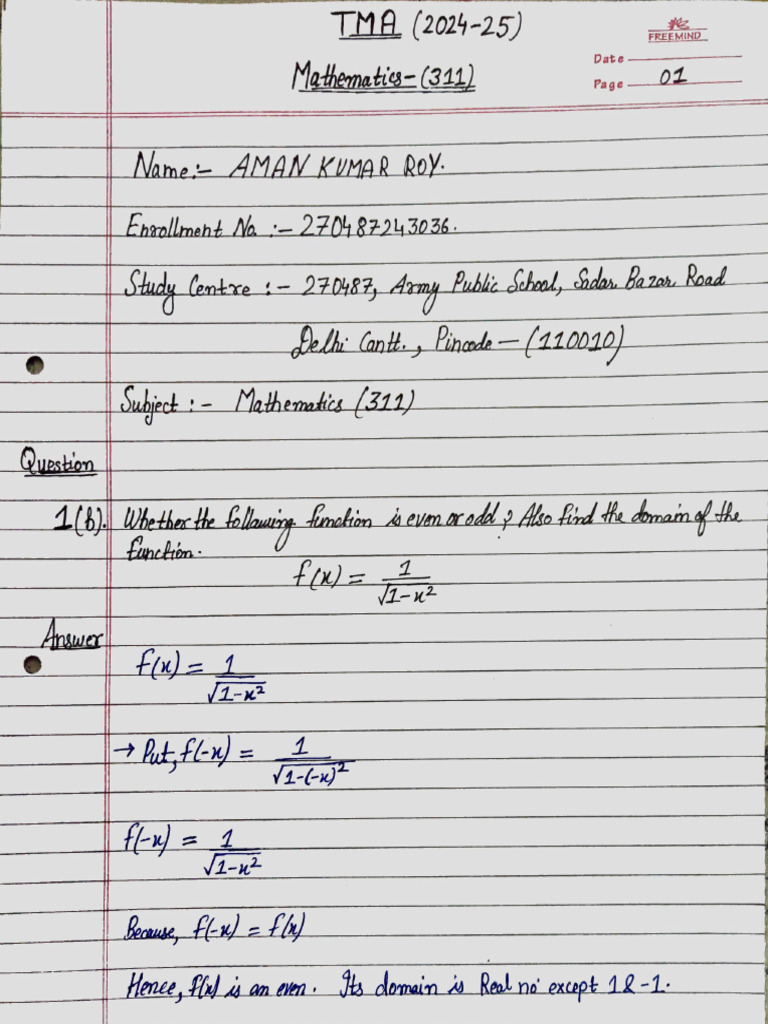 TMA (2024-25)
FREEMIND
Mathematics-(311)
Date
Page 01
Name:- AMAN KUMAR ROY.
Enrollment No :- 270487243036.
Study Centre :- 270487, Army Public School, Sadar Bazar Road
Delhi Cantt., Pincode - (110010)
Subject :- Mathematics (311)
Question
1(b). Whether the following function is even or odd? Also find the domain of the
function.
f(x) = 1/√1-x²
Answer
f(x) = 1/√1-x²
→ Put, f(-x) = 1/√1-(-x)²
f(-x) = 1/√1-x²
Because, f(-x) = f(x)
Hence, f(x) is an even. Its domain is Real no except 1 & -1.